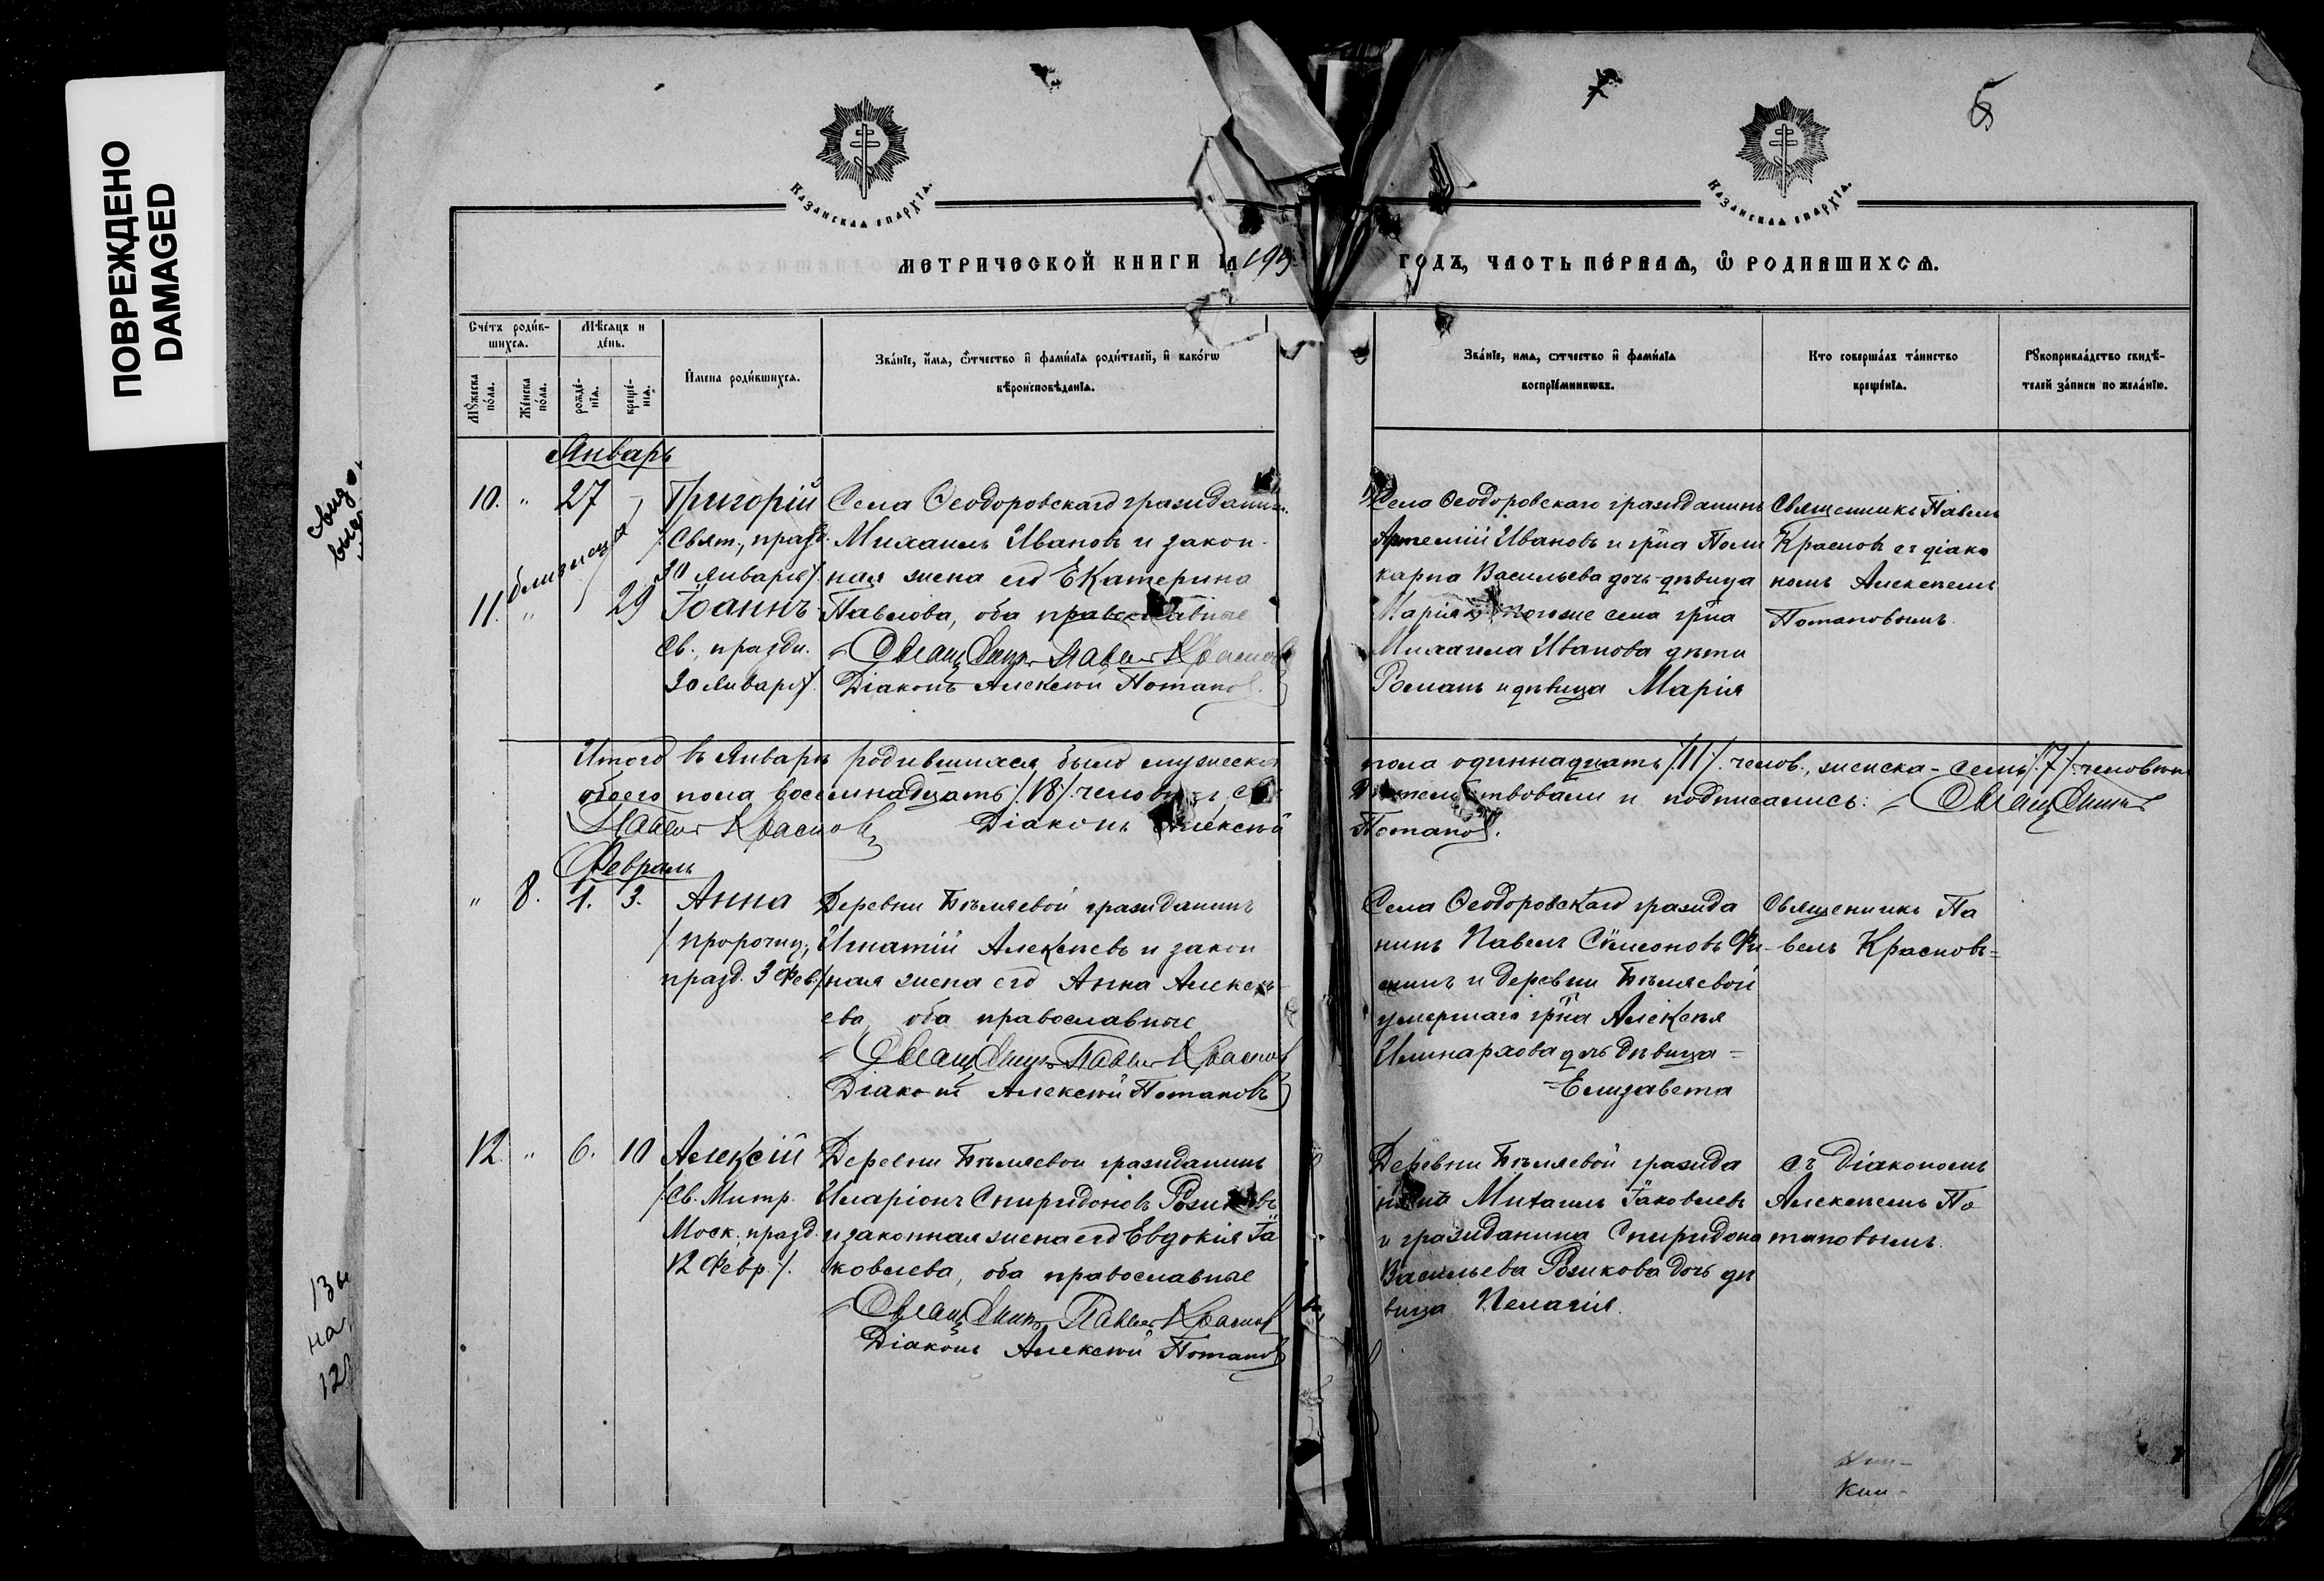 ПОВРЕЖДЕНО
DAMAGED
Казанская епархїа.
Казанская епархїа.
5
МЕТРИЧЕСКОЙ КНИГИ НА 191
ГОДЪ, ЧАСТЬ ПЕРВАЯ, Ѿ РОДИВШИХСЯ.
Счетъ родив-
шихся.
Мѣсяцъ и
день.
Мужеска
пола.
Женска
пола.
рожде-
нїа.
креще-
нїа.
Имена родившихся.
Званїе, имя, ѻтчество и фамилїа родителей, и какогѡ
вѣроисповѣданїа.
Званїе, имя, ѻтчество и фамилїа
воспрїемникѡвъ.
Кто совершалъ таинство
крещенїа.
Рукоприкладство свидѣ-
телей записи по желанїю.
Январь
10. " 27 Григорій
/Свят., празд.
30 Января/
близнецы
11. " 29 Іоаннъ
Св., праздн.
30 Января/.
Села Ѳеодоровскаго гражданинъ
Михаилъ Ивановъ и закон-
ная жена его Екатерина
Павлова, оба православные
Священникъ Павелъ Красновъ
Діаконъ Алексѣй Потаповъ.
Села Ѳеодоровскаго гражданинъ
Артемій Ивановъ и гр̃на Поли
карпа Васильева дочь дѣвица
Марія; тогоже села гр̃на
Михаила Иванова дѣти
Романъ и дѣвица Марія
Священникъ Павелъ
Красновъ съ діако
номъ Алексѣемъ
Потаповымъ.
Итого въ Январѣ родившихся было мужеска пола одиннадцать /11/. челов., женска - семь /7/. человѣкъ
обоего пола восемнадцать /18/. человѣкъ. Свидѣтельствовали и подписались: Священникъ
Павелъ Красновъ Діаконъ Алексѣй Потаповъ.
Февраль
" 8. 1. 3. Анна
/пророчиц.,
празд. 3 Фев./
Деревни Бѣляевой гражданинъ
Игнатій Алексѣевъ и закон
ная жена его Анна Алексѣ
ева, оба православные
Священникъ Павелъ Красновъ
Діаконъ Алексѣй Потаповъ
Села Ѳеодоровскаго гражда
нинъ Павелъ Симеоновъ Фи-
и деревни Бѣляевой
умершаго гр̃на Алексѣя
дочь дѣвица =
=Елизавета
Священникъ Па
велъ Красновъ=
12. " 6. 10 Алексій
/Св. Митр.
Моск., празд.
12 Февр./.
Деревни Бѣляевой гражданинъ
Иларіонъ Спиридоновъ Рожковъ
и законная жена его Евдокія Іа
ковлева, оба православные
Священникъ Павелъ Красновъ
Діаконъ Алексѣй Потаповъ
Деревни Бѣляевой гражда
нинъ Михаилъ Іаковлевъ
и гражданина Спиридона
Васильева Рожкова дочь дѣ
вица Пелагія.
съ Діакономъ
Алексѣемъ По
таповымъ.
на
12